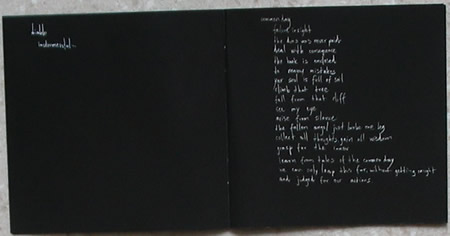 instrumental
common day
insight
the dues was never made
deal with consequence
the book is
to many mistakes
your soul is full of soil
climb that tree
fall from that cliff
see my eye
arise from silence
the fallen angel just broke me leg
collect all thoughts gain all wisdom
grasp for the inner
learn from tales of the common day
we can only leap this far without getting insight
and judged for our actions